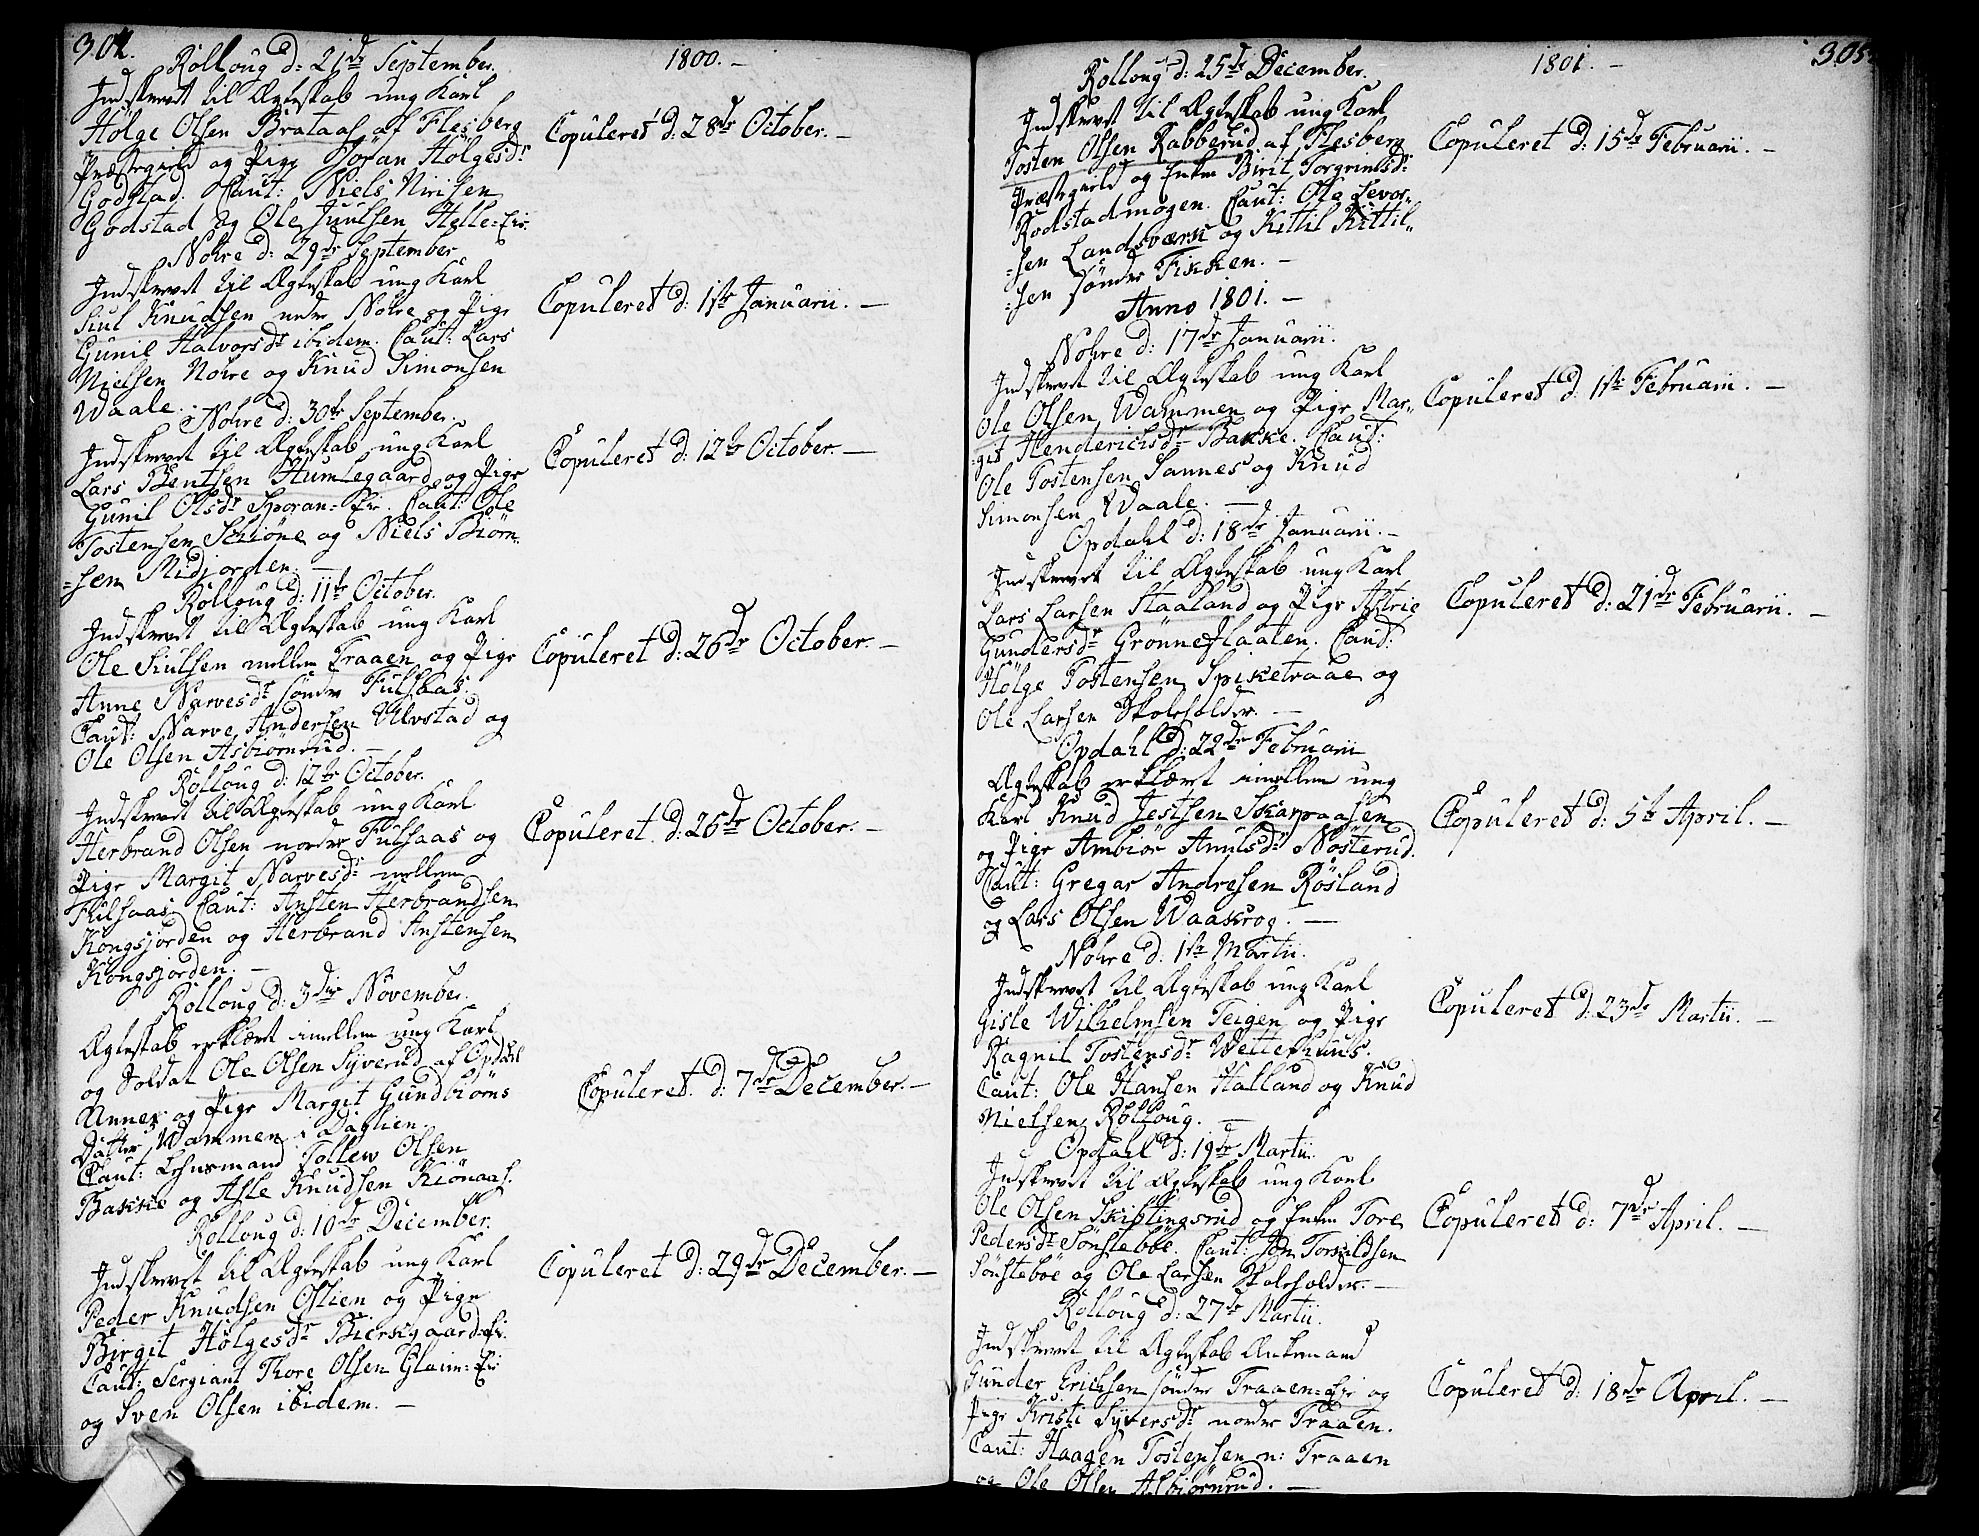 304.
1800. –
Rolloug d: 21de September.
Indskrevet til Ægteskab ung Karl
Hölge Olsen Brataas af Flesberg
Præstegield og Pige Jöran Hölgesdr
Godstad. Caut: Niels Nirisen
Godstad og Ole Juulsen Helle-Eie.
Copuleret d: 28de October. –
Nohre d: 29de September
Indskrevet til Ægteskab ung Karl
Siul Knudsen nedre Nohre og Pige
Gunil Halvorsdr ibidem. Caut: Lars
Nielsen Nohre og Knud Simonsen
Waale.
Copuleret d: 1ste Januarii. –
Nohre d: 30te September.
Indskrevet til Ægteskab ung Karl
Lars Bentsen Humlegaard og Pige
Gunil Olsdr Sporan-Eie. Caut: Ole
Tostensen Schiöne og Niels Biörn-
-sen Midjorden. –
Copuleret d: 12te October. –
Rolloug d: 11te October.
Indskrevet til Ægteskab ung Karl
Ole Siulsen mellem Traaen og Pige
Anne Narvesdr söndre Fulsaas.
Caut: Narve Andersen Ulvstad og
Ole Olsen Asbiörnrud. –
Copuleret d: 26de October. –
Rolloug d: 12te October.
Indskrevet til Ægteskab ung Karl
Herbrand Olsen nordre Fulsaas og
Pige Margit Narvesdr mellem
Fulsaas. Caut: Ansten Herbrandsen
Kongsjorden og Herbrand Anstensen
Kongsjorden. –
Copuleret d: 26de October. –
Rolloug d: 3die November.
Ægteskab erklæret imellem ung Karl
og Soldat Ole Olsen Syverud af Opdahl
Annex og Pige Margit Gundbiörns
Datter Wammen i Daglien.
Caut: Lehnsmand Tollew Olsen
Bakke og Asle Knudsen Kiönaas.
Copuleret d: 7de December. –
Rolloug d: 10de December.
Indskrevet til Ægteskab ung Karl
Peder Knudsen Oslien og Pige
Birgit Hölgesdr Bierkgaard-Ei.
Caut: Sergiant Thore Olsen Glaim-Eie
og Sven Olsen ibidem. –
Copuleret d: 29de December. –
1801. –
305.
Rolloug d: 25de December.
Indskrevet til Ægteskab ung Karl
Tosten Olsen Rabberud af Flesberg
Præstegield og Enken Birit Torgrimsdr
Rodstadmogen. Caut: Ole Levor-
-sen Landsværk og Kittil Kittil-
-sen söndre Fikken. –
Copuleret d: 15de Februarii. –
Anno 1801. –
Nohre d: 17de Januarii.
Indskrevet til Ægteskab ung Karl
Ole Olsen Wammen og Pige Mar-
-git Henderichsdr Bakke. Caut:
Ole Tostensen Sannes og Knud
Simonsen Waale. –
Copuleret d: 1ste Februarii. –
Opdahl d: 18de Januarii. –
Indskrevet til Ægteskab ung Karl
Lars Larsen Staaland og Pige Astrie
Gundersdr Grönneflaaten. Caut:
Hölge Tostensen Spiketraae og
Ole Larsen Skoleholder. –
Copuleret d: 21de Februarii. –
Opdahl d: 22de Februarii
Ægteskab erklæret imellem ung
Karl Knud Jestsen Skarpaasen
og Pige Ambiör Anulsdr Nösterud.
Caut: Gregar Andresen Rösland
og Lars Olsen Waakrog. –
Copuleret d: 5te April. –
Nohre d: 1ste Martii.
Indskrevet til Ægteskab ung Karl
Gisle Wilhelmsen Teigen og Pige
Ragnil Tostensdr Wetterhuus.
Caut: Ole Hansen Halland og Knud
Nielsen Rolloug. –
Copuleret d: 23de Martii. –
Opdahl d: 19de Martii.
Indskrevet til Ægteskab ung Karl
Ole Olsen Skiftingsrud og Enken Tore
Pedersdr Sönsteböe. Caut: Jon Torsildsen
Sönsteböe og Ole Larsen Skoleholder. –
Copuleret d: 7de April. –
Rolloug d: 27de Martii.
Indskrevet til Ægteskab Enkemand
Gunder Erichsen söndre Traaen-Eje og
Pige Kristi Syversdr nordre Traaen.
Caut: Haagen Tostensen n: Traaen
og Ole Olsen Asbiörnrud. –
Copuleret d: 18de April. –